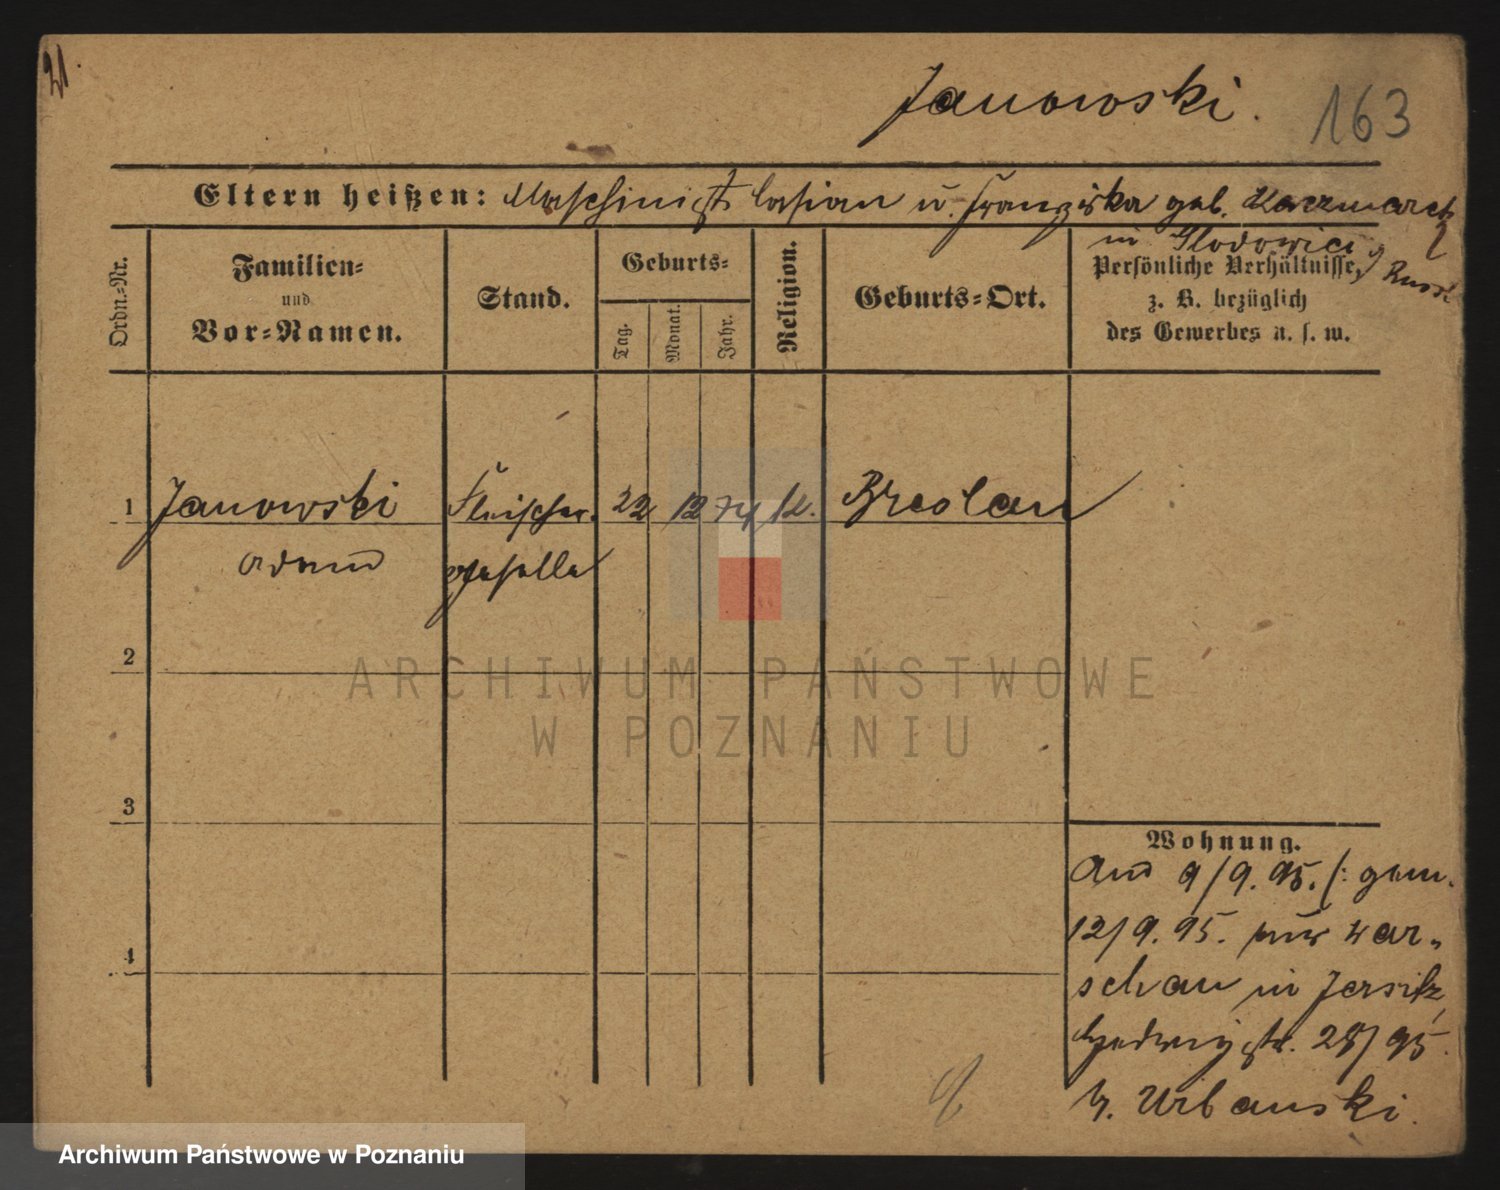 21.
Janowski.
163
Eltern heißen: Maschinist Casian u. Franziska geb. Kaczmarek
in Glodowiec, Russl.
Ordn.-Nr.
Familien- und Vor-Namen.
Stand.
Geburts-
Tag.
Monat.
Jahr.
Religion.
Geburts-Ort.
Persönliche Verhältnisse,
z. B. bezüglich
des Gewerbes u. s. w.
1 Janowski Fleischer- 22 12 74 k. Breslau
Adam geselle
2
3
4
Wohnung.
9/9. 95. /: gem.
12/9. 95. aus War-
schau in Jersitz,
Hedwigstr. 28/95.
b. Urbanski.
ARCHIWUM PAŃSTWOWE
W POZNANIU
Archiwum Państwowe w Poznaniu